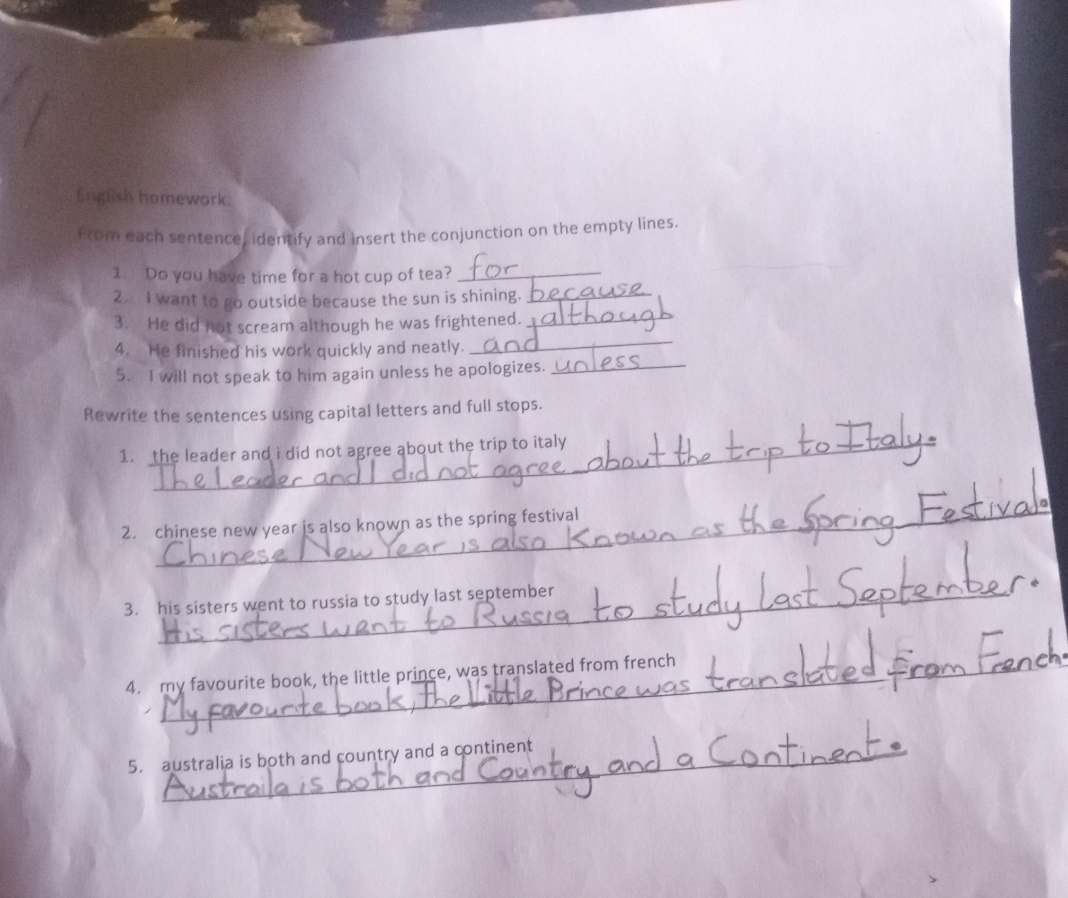 English homework.
From each sentence, identify and insert the conjunction on the empty lines.
1. Do you have time for a hot cup of tea? for
2. I want to go outside because the sun is shining. because
3. He did not scream although he was frightened. although
4. He finished his work quickly and neatly. and
5. I will not speak to him again unless he apologizes. unless
Rewrite the sentences using capital letters and full stops.
1. the leader and i did not agree about the trip to italy
The Leader and I did not agree about the trip to Italy.
2. chinese new year is also known as the spring festival
Chinese New Year is also Known as the Spring Festival.
3. his sisters went to russia to study last september
His sisters went to Russia to study last September.
4. my favourite book, the little prince, was translated from french
My favourite book, The Little Prince was translated from French.
5. australia is both and country and a continent
Austraila is both and Country and a Continent.